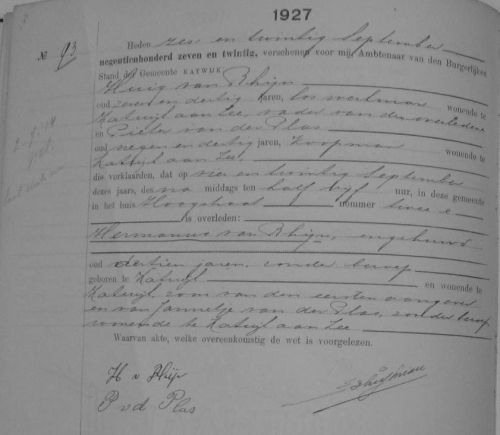 1927
No 93
Heden zes en twintig September
negentienhonderd zeven en twintig, verschenen voor mij, Ambtenaar van den Burgerlijken
Stand der Gemeente KATWIJK
Huig van Rhijn
oud zeven en dertig jaren, los werkman wonende te
Katwijk aan Zee, vader van den overledene
en Pieter van der Plas
oud negen en dertig jaren, koopman wonende te
Katwijk aan Zee,
die verklaarden, dat op vier en twintig September
dezes jaars, des na middags ten half vijf ure, in deze gemeente
in het huis Hoogstraat nummer twee
is overleden:
Hermanus van Rhijn, ongehuwd
oud dertien jaren, zonder beroep
geboren te Katwijk en wonende te
Katwijk, zoon van den eersten aangever
en van Jannetje van der Plas, zonder beroep
wonende te Katwijk aan Zee
Waarvan akte, welke overeenkomstig de wet is voorgelezen.
H v Rhijn
P vd Plas